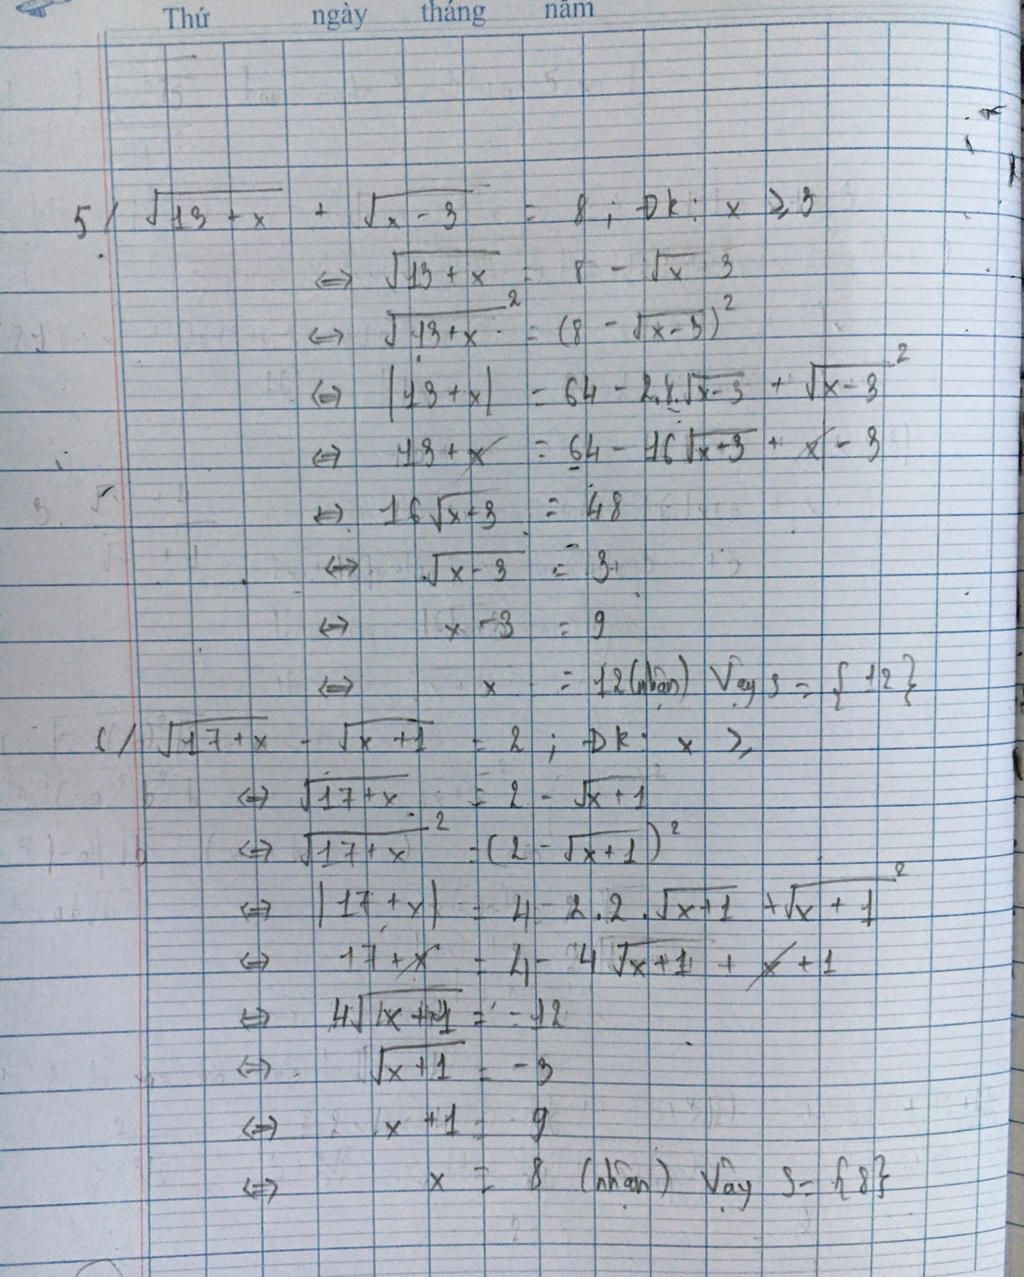 Thứ ngày tháng năm
5/ √(13 + x) + √(x - 3) = 8 ; Đk: x ≥ 3
⇔ √(13 + x) = 8 - √x 3
⇔ √(13+x)² = (8 - √(x-3))²
⇔ |13+x| = 64 - 2.8.√(x-3) + √(x-3)²
⇔ 13+x = 64 - 16√(x-3) + x - 3
⇔ 16√(x-3) = 48
⇔ √(x-3) = 3
⇔ x - 3 = 9
⇔ x = 12 (nhận) Vậy S = {12}
6/ √(17+x) - √(x+1) = 2 ; Đk: x ≥
⇔ √(17+x) = 2 - √(x+1)
⇔ √(17+x)² = (2 - √(x+1))²
⇔ |17+x| = 4 - 2.2.√(x+1) + √(x+1)²
⇔ 17+x = 4 - 4√(x+1) + x + 1
⇔ 4√(x+1) = -12
⇔ √(x+1) = -3
⇔ x + 1 = 9
⇔ x = 8 (nhận) Vậy S = {8}